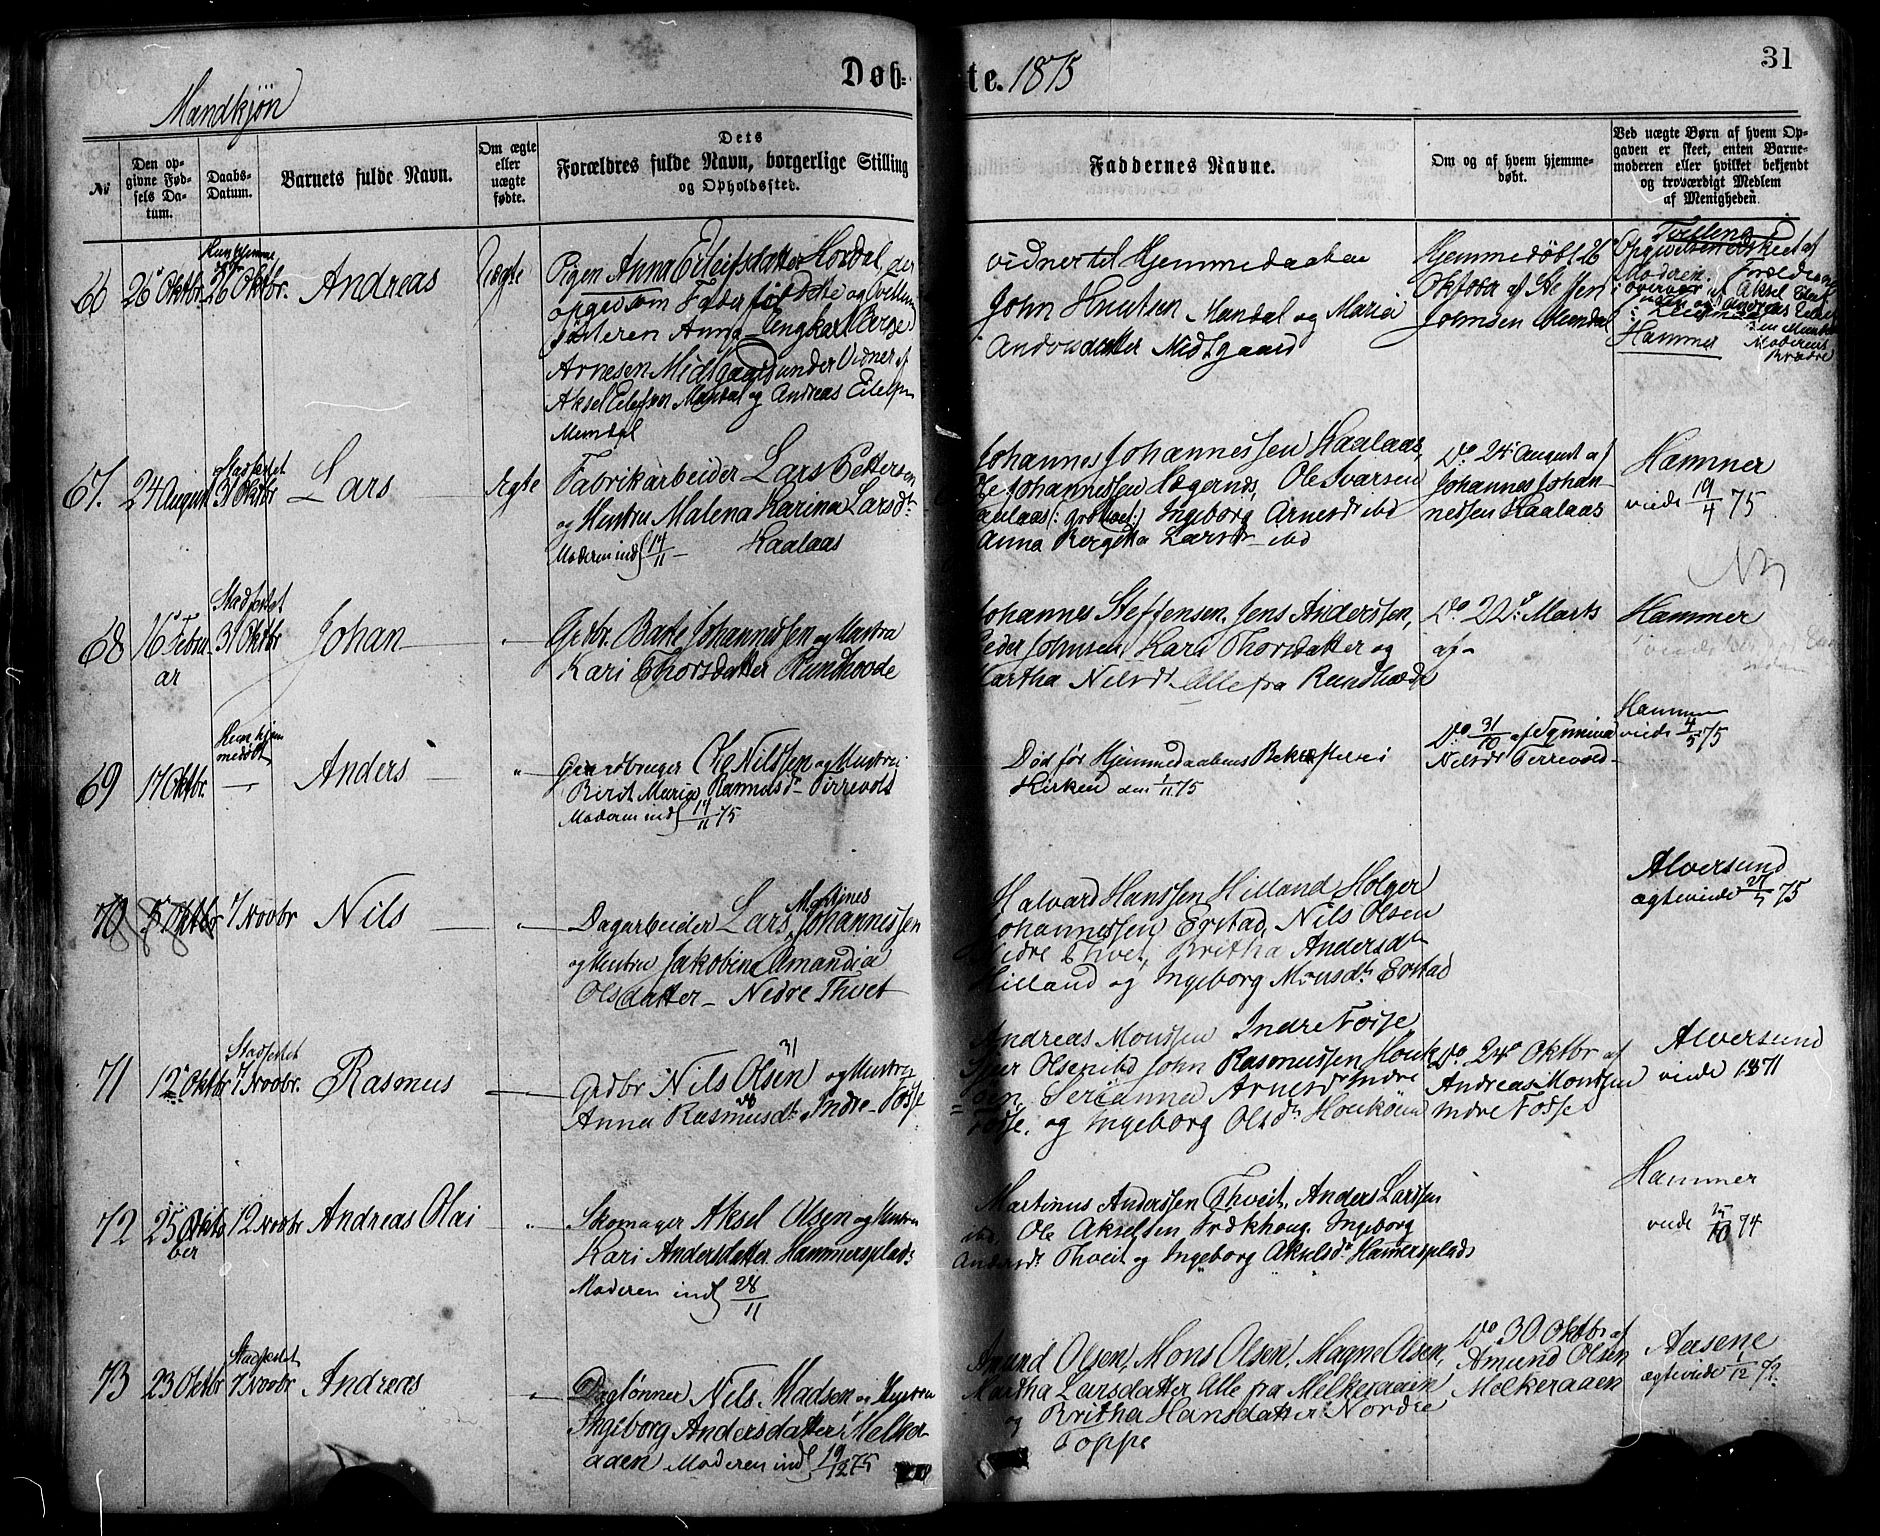 Døb-te. 1875
31
Mandkjøn
№
Den opgivne Fødsels Datum.
Daabs-Datum.
Barnets fulde Navn.
Om ægte eller uægte fødte.
Dets Forældres fulde Navn, borgerlige Stilling og Opholdssted.
Faddernes Navne.
Om og af hvem hjemmedøbt.
Ved uægte Børn af hvem Opgaven er skeet, enten Barnemoderen eller hvilket bekjendt og troværdigt Medlem af Menigheden.
66 26 Oktbr. 26 Oktbr. Andreas Uægte
Pigen Anna Eilefsdatter der
opgev som Fader til dette og
Arnesen Midtgaard under Vidner af
Aksel Eilefsen Mundal og Andreas Eilefsen
Mundal
vidner til Hjemmedaaben
John Knutsen Mundal og Maria
Andersdatter Midtgaard
Hjemmedøbt 26
Oktober af Steffen
Johnsen Mundal
Tvilling
Opgivelsen skeet af
Moderen
Hammer
Moderens
Brødre
67. 24 August Stadfestet 31 Oktbr Lars Ægte
Fabrikarbeider Lars Pettersen
og Hustru Malena Karina Larsdt
Moderen indl 14/11 — Kaalaas
Johannes Johannessen Kaalaas,
Ole Johannessen Hægernæs, Ole Ivarsen
Kaalaas Ingeborg Arnesdt ibd
Anna Bergitta Larsdt ibd
Do 24 August af
Johannes Johan-
nessen Kaalaas
Hammer
viede 19/4 75
68 16 Febru-
ar
Stadfestet 31 Oktbr Johan — "
Grdbr. Johannessen og Hustru
Kari Thorsdatter Rundhovde
Johannes Steffensen, Jens Anderssen,
Peder Johnsen, Kari Thorsdatter og
Martha Nilsdt Alle fra Rundhovde
Do 22 Marts
af —
Hammer
69 17 Oktbr. Kun hjemmedøbt — Anders — "
Gaardbruger Ole Nilssen og Hustru
Berit Maria Rasmusdt
Moderen indl 14/11 75
Død før Hjemmedaabens Bekræftelse i
Kirken den 1/11 75
Do 31/10 af
Nilsdt
Hammer
viede 4/5 75
70 5 Oktbr 7 Novbr Nils — "
Dagarbeider Lars Martines Johannessen
og Hustru Jakobine Amandia
Olsdatter — Nedre Thvet
Halvard Hanssen Hilland, Holger
Johannessen Erstad, Nils Olsen
Nedre Thvet, Britha Andersdt
Hilland og Ingeborg Monsdt Erstad
Alversund
ægteviede 27/7 75
71 12 Oktbr Stadfestet 7 Novbr. Rasmus —
Grdbr Nils Olsen 31 og Hustru
Anna Rasmusdt Indre Fosse
Andreas Monssen Indre Fosse,
Iver Olsen ibd John Rasmussen
Serianna Arnesdt Indre
Fosse, og Ingeborg Olsdt
Do 24 Oktbr af
Andreas Monssen
Indre Fosse
Alversund
viede 1871
72 25 Okto-
ber
12 Novbr Andreas Olai "
Skomager Aksel Olsen og Hustru
Kari Andersdatter Hammersplads
Moderen indl 28/11
Martinus Anderssen Thveit, Anders Larssen
ibd, Ole Akselssen Ingeborg
Andersdt Thveit og Ingeborg Akselsdt Hamersplads
Hammer
viede 25/10 74
73 23 Oktbr Stadfestet 7 Novbr Andreas —
Daglønner Nils Madsen og Hustru
Ingeborg Andersdatter Melke-
aaen Moderen indl 19/12 75
Amund Olsen, Mons Olsen, Magne Olsen,
Martha Larsdatter Alle fra Melkeraaen
og Britha Hansdatter Nordre
Toppe
Do 30 Oktbr af
Amund Olsen
Melkeraaen
Aasene
ægteviede